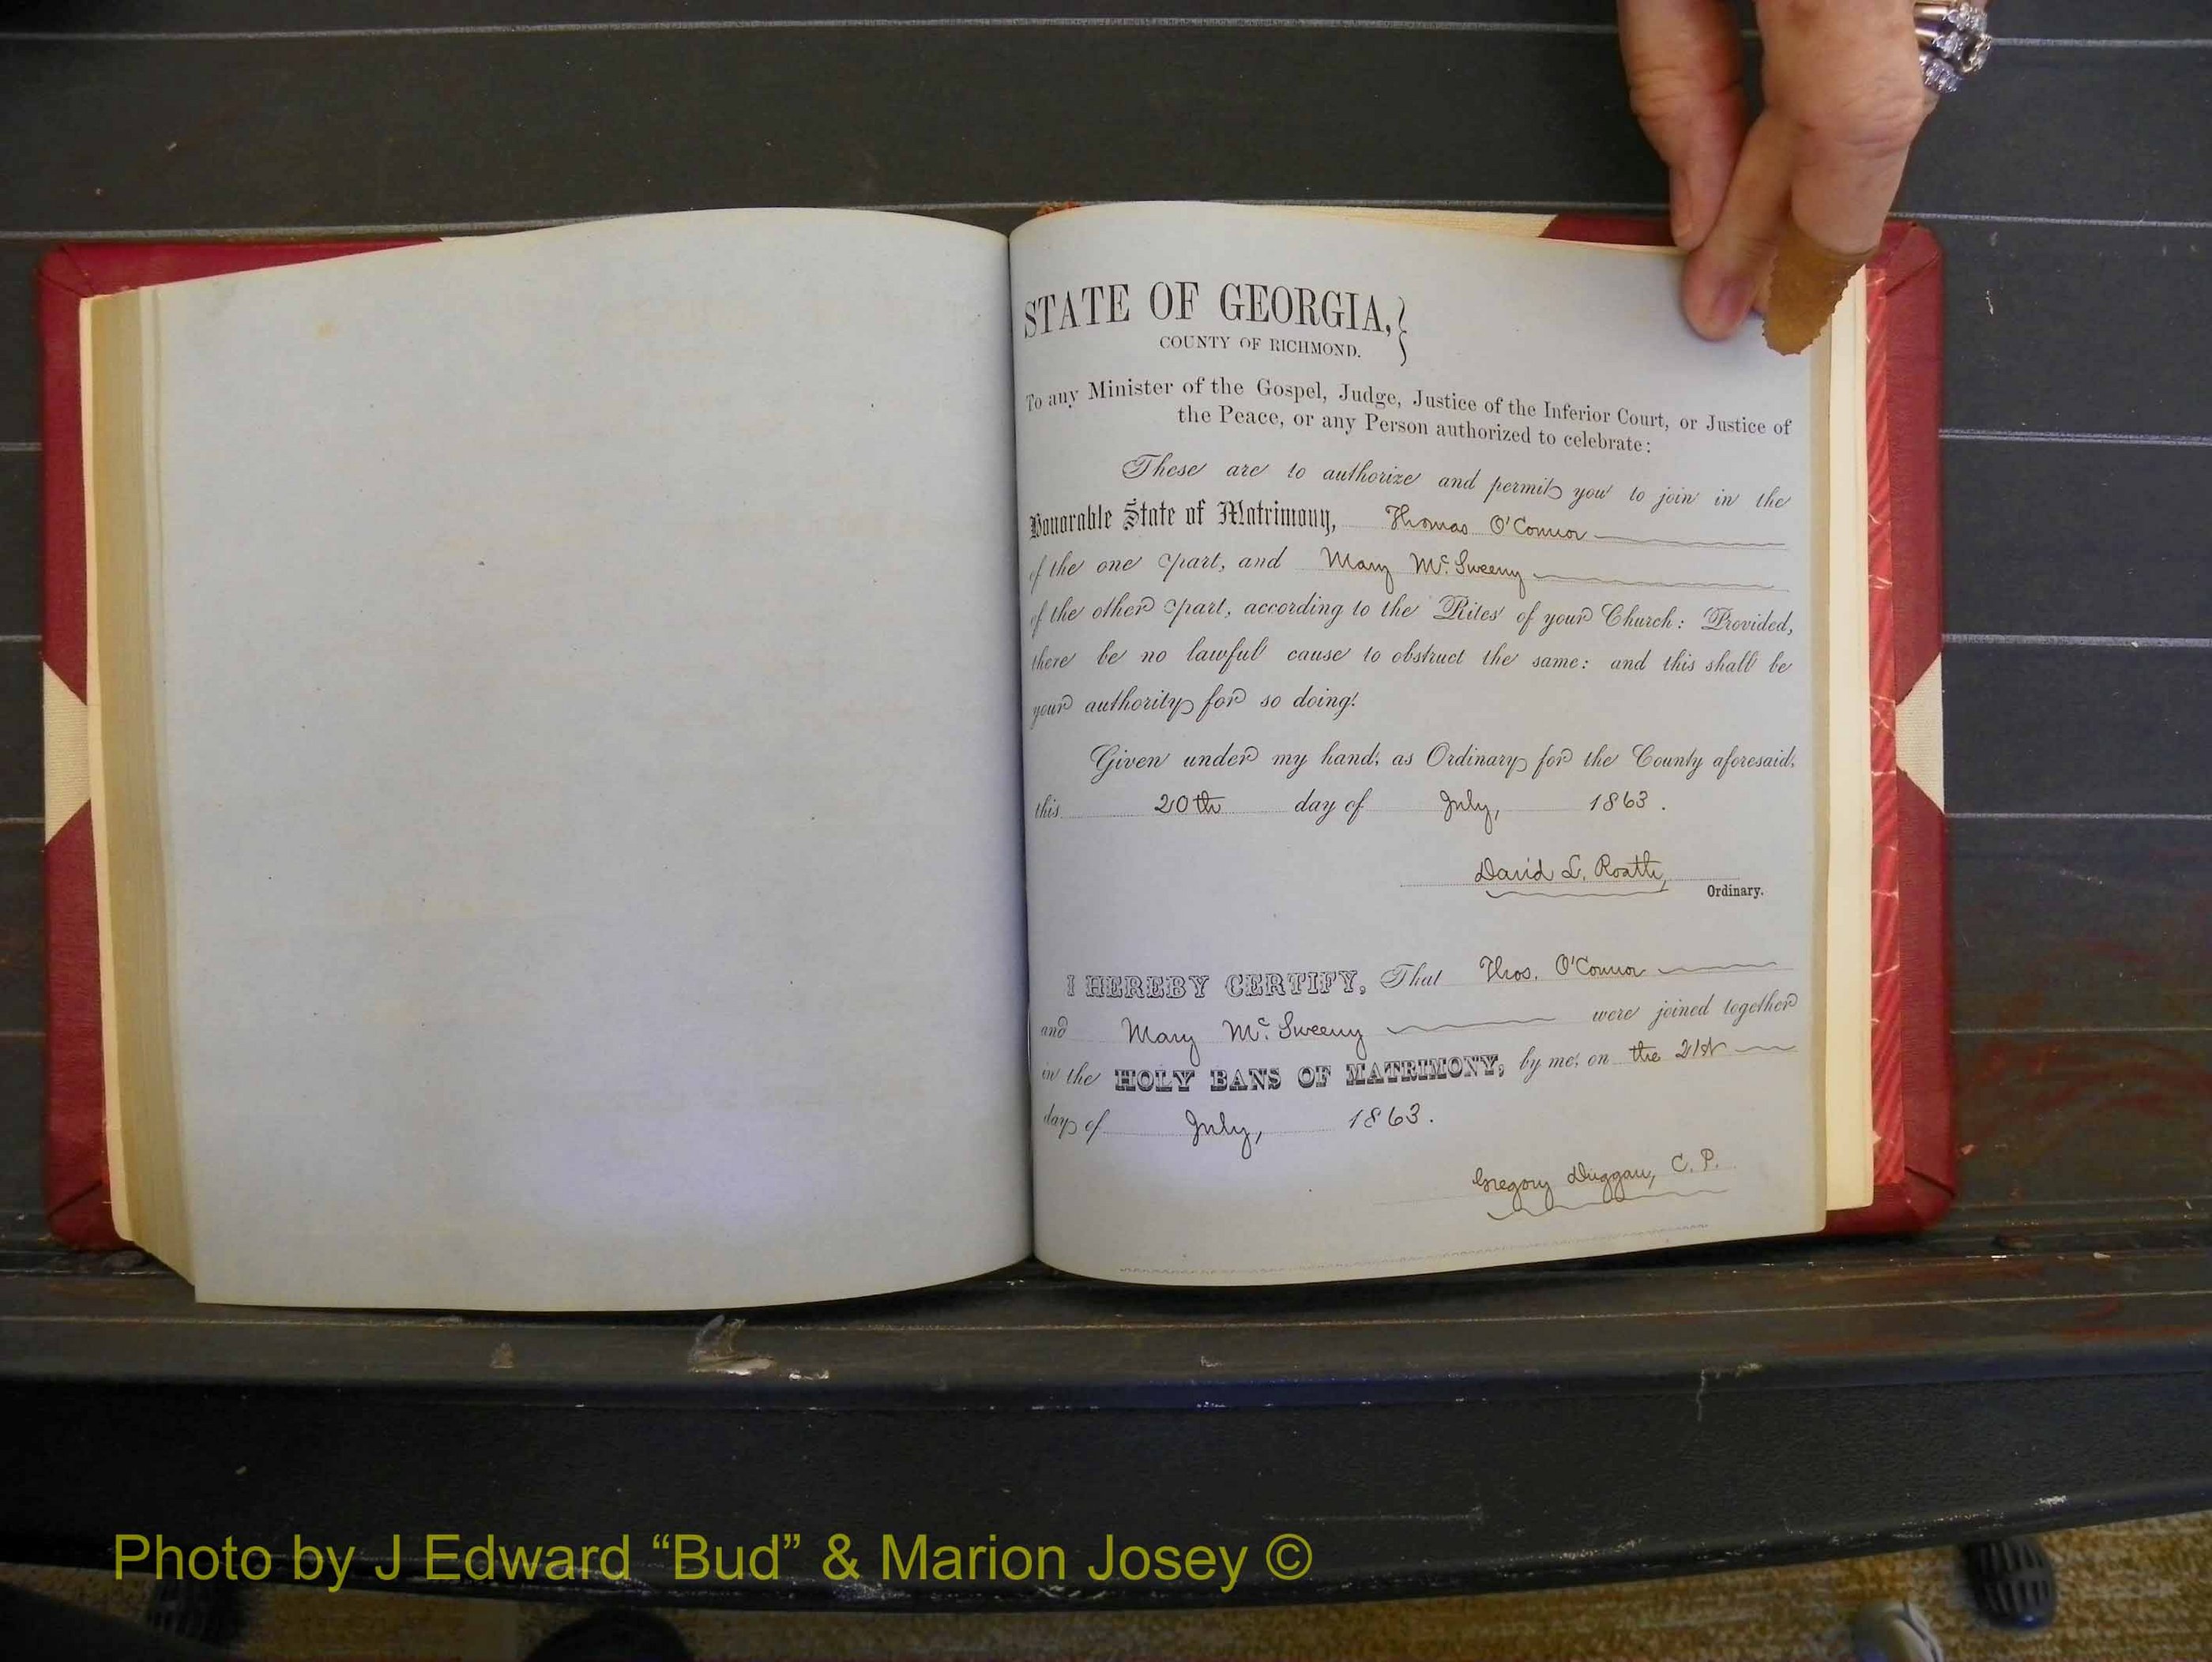 STATE OF GEORGIA,
COUNTY OF RICHMOND.
To any Minister of the Gospel, Judge, Justice of the Inferior Court, or Justice of
the Peace, or any Person authorized to celebrate:
These are to authorize and permit you to join in the
Honorable State of Matrimony, Thomas O'Connor
of the one part, and Mary Mc. Sweeny
of the other part, according to the Rites of your Church: Provided,
there be no lawful cause to obstruct the same: and this shall be
your authority for so doing!
Given under my hand, as Ordinary for the County aforesaid,
this 20th day of July, 1863.
David L. Roath,
Ordinary.
I HEREBY CERTIFY, That Thos. O'Connor
and Mary Mc. Sweeny were joined together
in the HOLY BANS OF MATRIMONY, by me, on the 21st
day of July, 1863.
Gregory Duggan, C. P.
Photo by J Edward “Bud” & Marion Josey ©